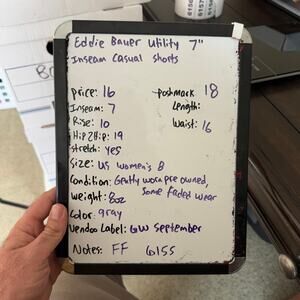 Eddie Bauer Utility 7"
Inseam Casual shorts
price: 16 poshmark 18
Inseam: 7 Length:
Rise: 10 Waist: 16
Hip 2 Hip: 19
Stretch: yes
Size: US women's 8
Condition: Gently worn pre owned,
some faded wear
weight: 8oz
Color: gray
Vendoo Label: GW September
Notes: FF 6155